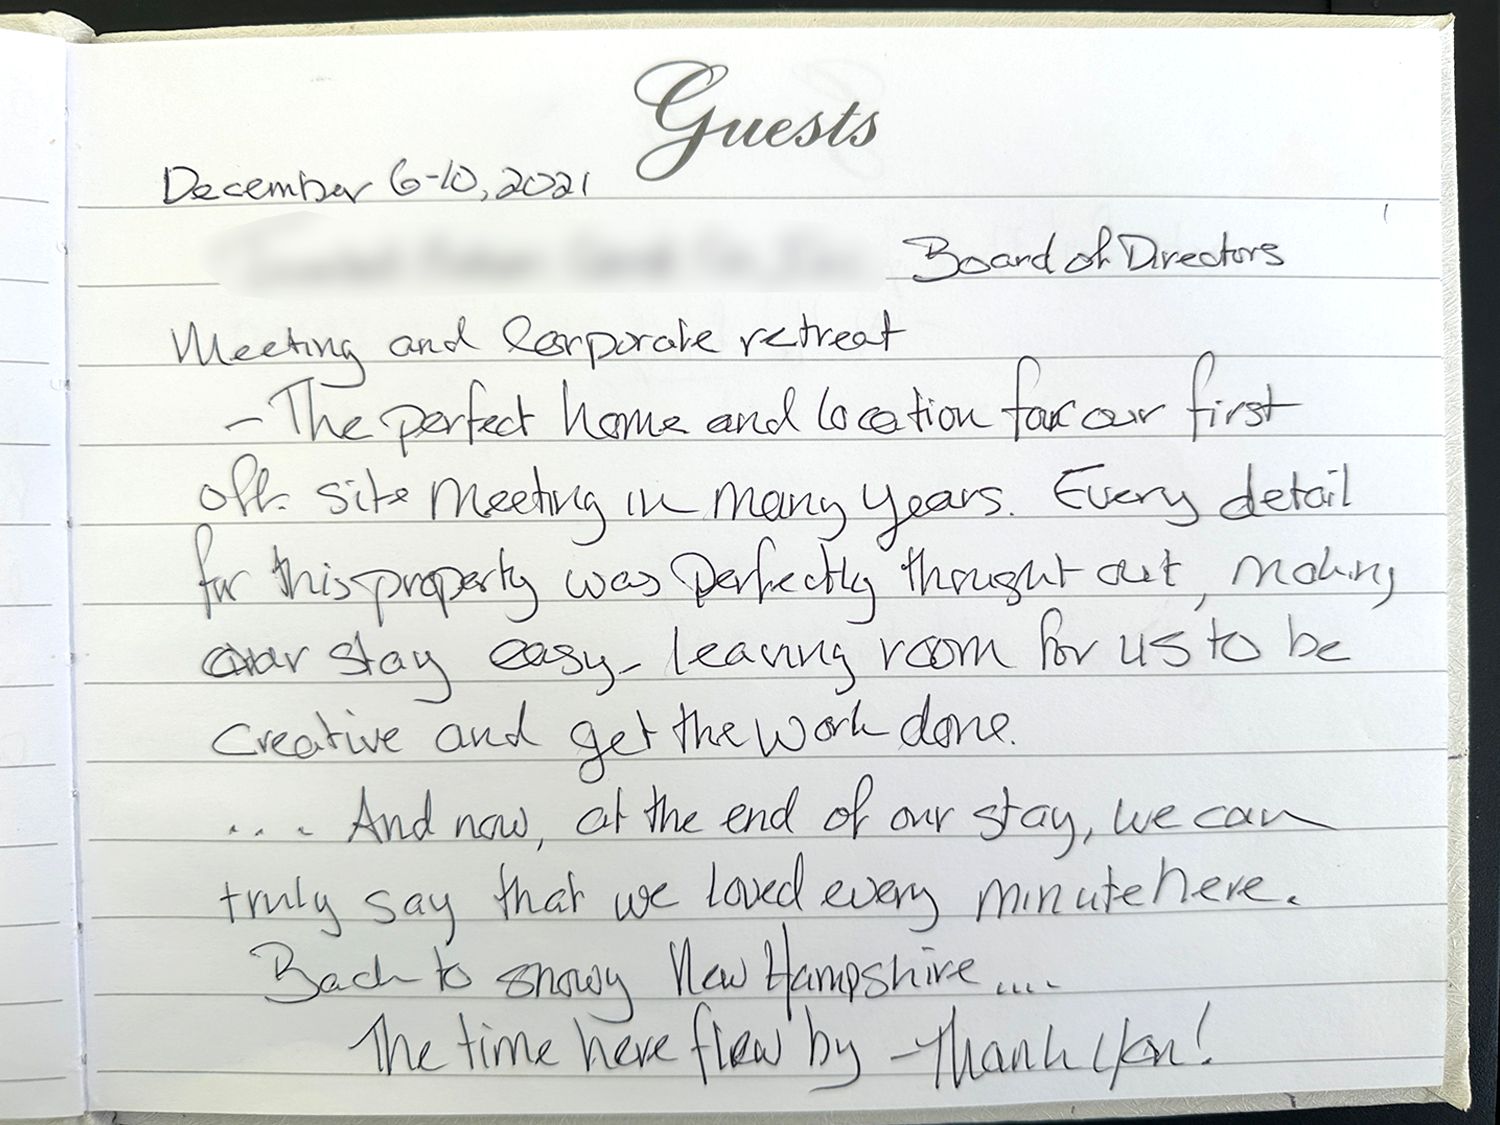 Guests
December 6-10, 2021
Board of Directors
Meeting and Corporate retreat
- The perfect home and location for our first
off. site meeting in many years. Every detail
for this property was perfectly thought out, making
our stay easy - leaving room for us to be
creative and get the work done.
.... And now, at the end of our stay, we can
truly say that we loved every minute here.
Back to snowy New Hampshire ....
The time here flew by - Thank You!